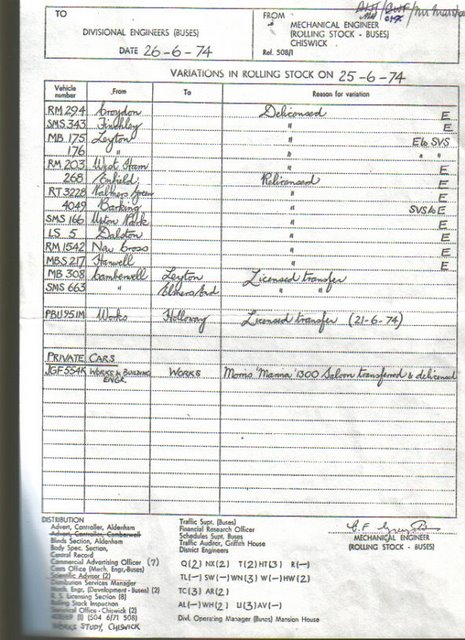 TO
DIVISIONAL ENGINEERS (BUSES)
DATE 26-6-74
FROM
MECHANICAL ENGINEER
(ROLLING STOCK - BUSES)
CHISWICK
Ref. 508/1
VARIATIONS IN ROLLING STOCK ON 25-6-74
Vehicle number From To Reason for variation
RM 294 Croydon Delicensed E
SMS 343 Finchley " E
MB 175 Leyton " E to SVS
176 " " " "
RM 203 West Ham " E
268 Enfield Relicensed E
RT 3228 Palmers Green " E
4049 Barking " SVS to E
SMS 166 Upton Park " E
LS 5 Dalston " E
RM 1542 New Cross " E
MBS 217 Hanwell " E
MB 308 Camberwell Leyton Licensed transfer
SMS 663 " " "
PBU 951M Works Holloway Licensed transfer (21-6-74)
PRIVATE CARS
JGF 554K WORKS & BUILDING ENGR. WORKS Morris 'Marina' 1300 Saloon transferred & delicensed
DISTRIBUTION
Advert. Controller, Aldenham
Advert. Controller, Camberwell
Blinds Section, Aldenham
Body Spec. Section,
Central Record
Commercial Advertising Officer (7)
Cars Office (Mech. Engr. Buses)
Scientific Advisor (2)
Distribution Services Manager
Mech. Engr. (Development - Buses) (2)
R.S. Licensing Section (8)
Rolling Stock Inspection
Statistical Office - Chiswick (2)
(1) (504 6/71 508)
WORKS STUDY, CHISWICK
Traffic Supt. (Buses)
Financial Research Officer
Schedules Supt. Buses
Traffic Auditor, Griffith House
District Engineers
Q(2) NX(2) T(2) HT(3) R(—)
TL(—) SW(—) WN(3) W(—) HW(2)
TC(3) AR(2)
AL(—) WH(2) U(3) AV(—)
Divl. Operating Manager (Buses) Mansion House
MECHANICAL ENGINEER
(ROLLING STOCK - BUSES)